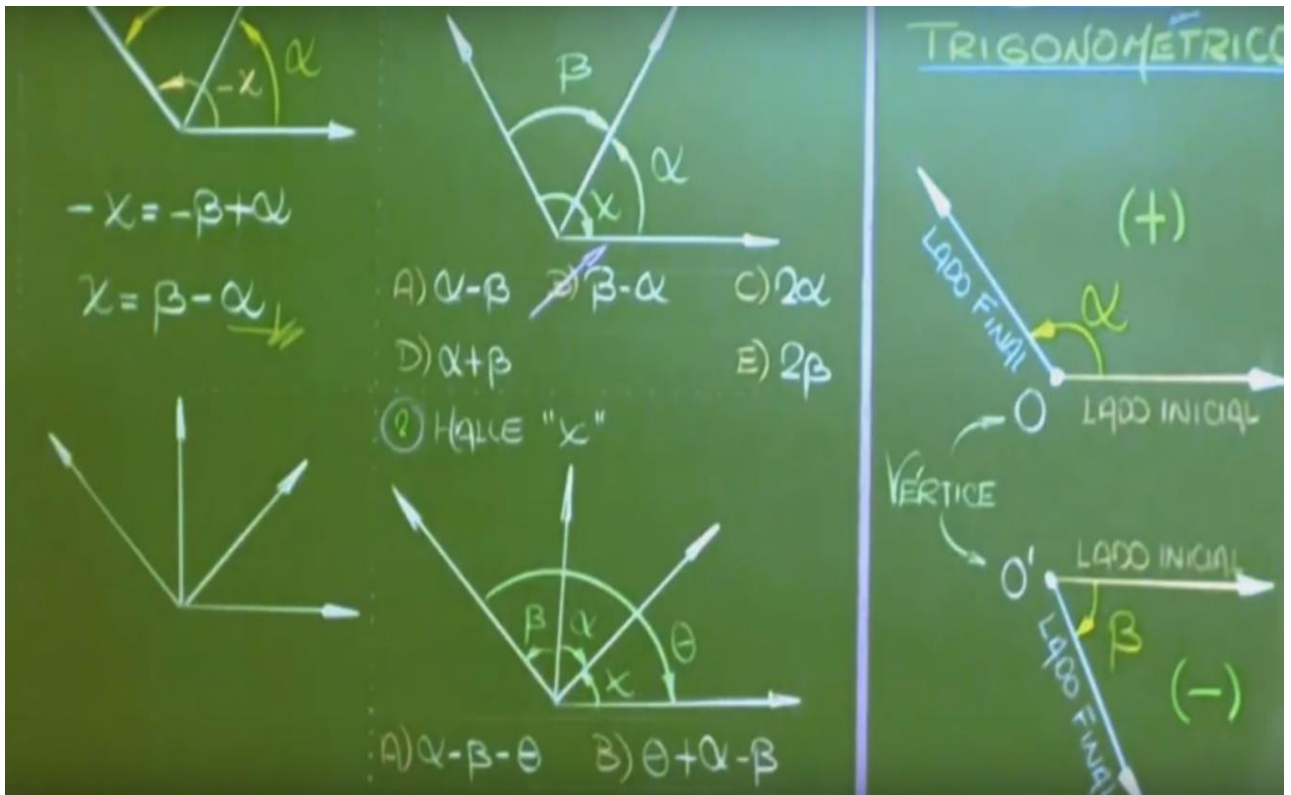 α
-x
-x = -β+α
x = β-α
β
α
x
A) α-β B) β-α C) 2α
D) α+β E) 2β
2 HALLE "X"
β α θ
x
A) α-β-θ B) θ+α-β
TRIGONOMÉTRICO
(+)
LADO FINAL
α
O
LADO INICIAL
VÉRTICE
O'
LADO INICIAL
β
LADO FINAL
(-)